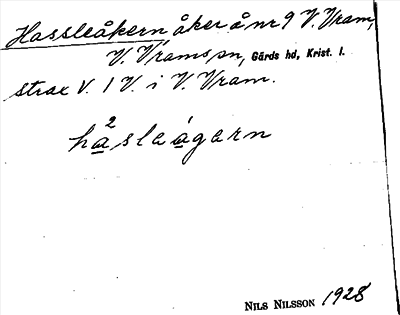 Hassleåkern åker å nr 9 V. Vram,
V. Vrams sn, Gärds hd, Krist. l.
strax V. I V. i V. Vram.
ha²sleågarn
NILS NILSSON 1928